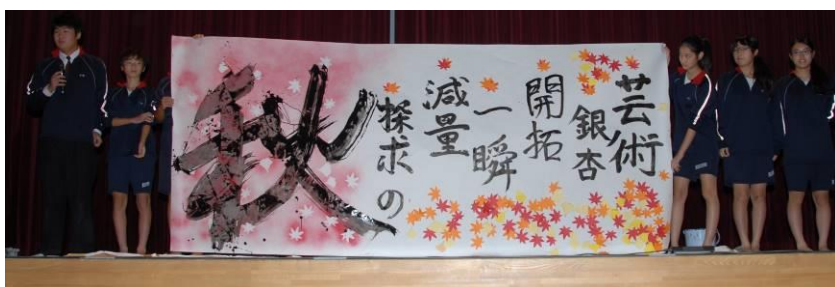 芸術
銀杏
開拓
一瞬
減量
探求の
秋